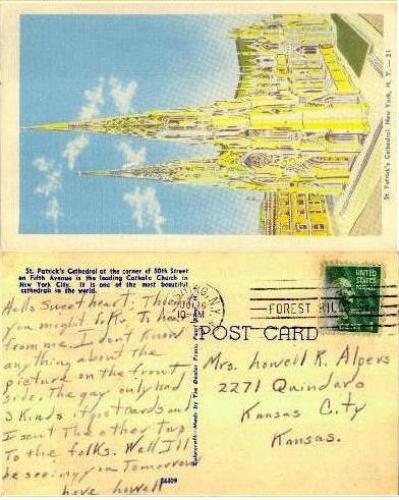 St. Patrick's Cathedral, New York, N. Y.—21
St. Patrick's Cathedral at the corner of 50th Street
on Fifth Avenue is the leading Catholic Church in
New York City. It is one of the most beautiful
cathedrals in the world.
Hello Sweetheart: Thought
you might like to hear
from me. I don't know
anything about the
picture on the front
side. The guy only had
3 kinds of postcards and
I sent the other two
to the folks. Well I'll
be seeing you tomorrow
love Lowell
N.Y.
10 AM
FOREST HILLS
UNITED STATES
POST CARD
Mrs. Lowell R. Alpers
2271 Quindaro
Kansas City
Kansas.